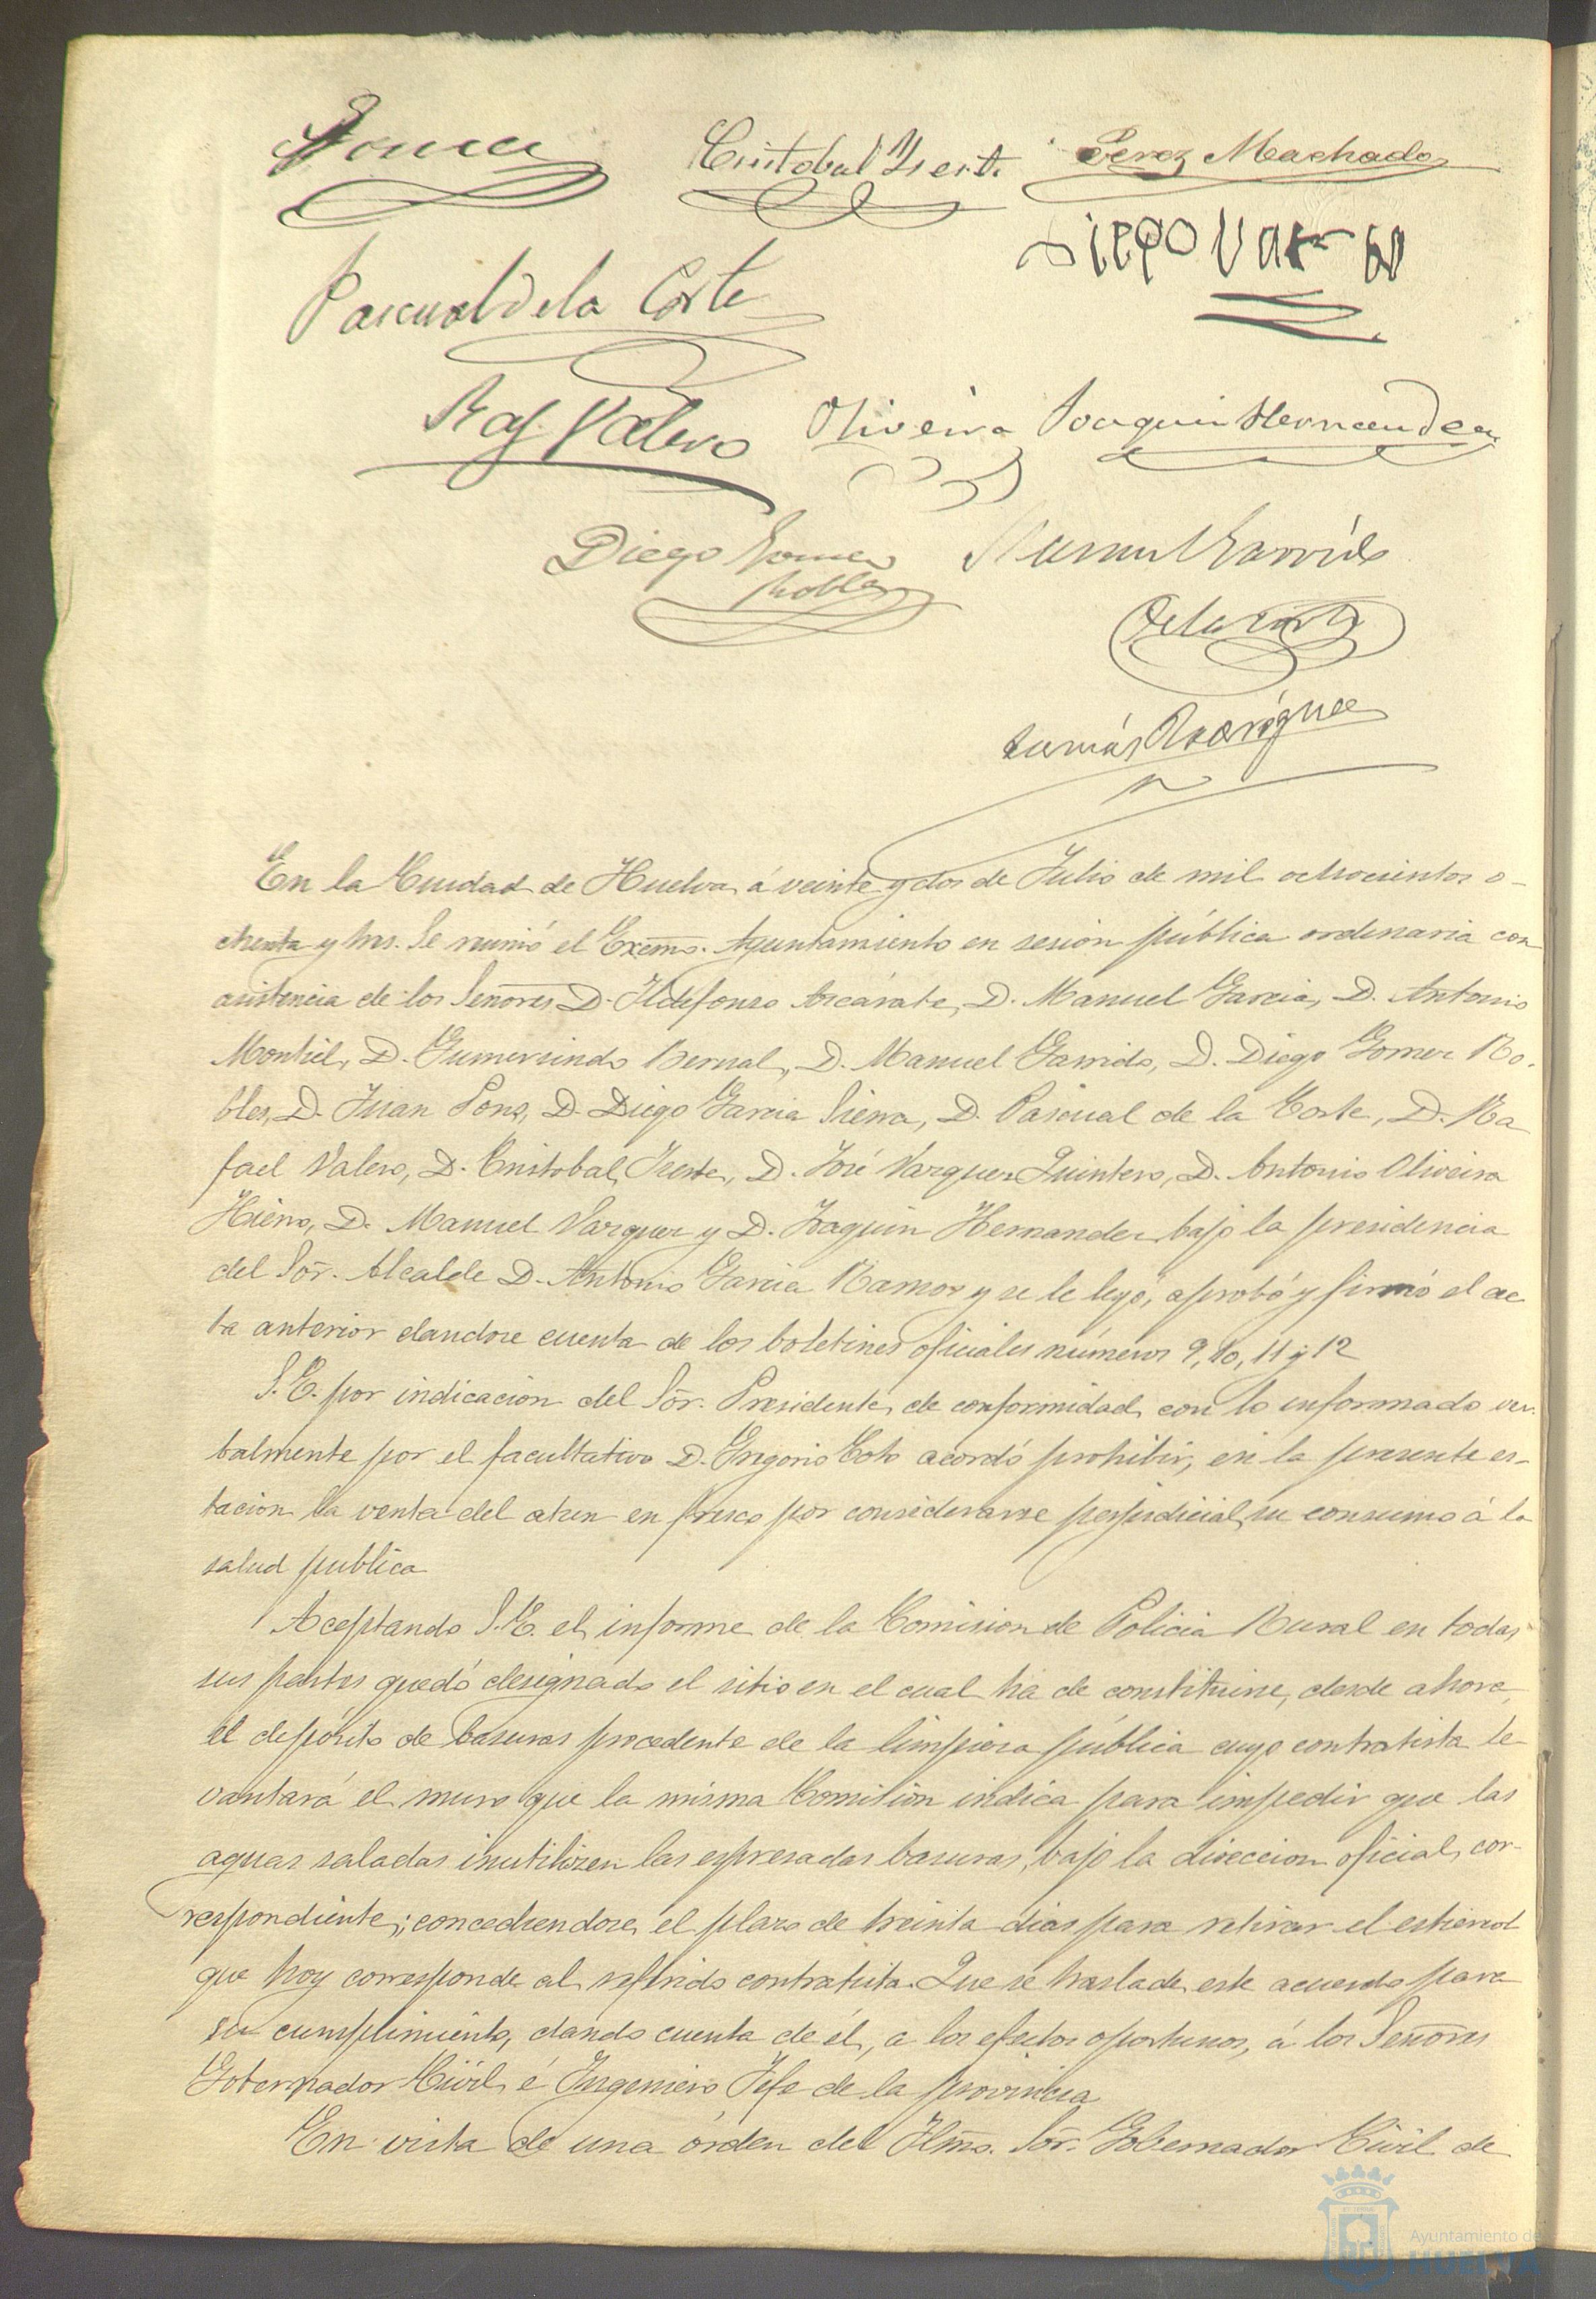 Cristobal Yrest. Perez Machado
Diego
Pascual de la Corte
Raf. Valero Oliveira Joaquin Hernandez
Diego Gomez Manuel Garrido
Robles
De la Corte
Tomás Rodriguez
En la Ciudad de Huelva á veinte y dos de Julio de mil ochocientos o-
chenta y tres. Se reunió el Excmo. Ayuntamiento en sesion pública ordinaria con
asistencia de los Señores D. Ildefonso Azcárate, D. Manuel Garcia, D. Antonio
Montiel, D. Gumersindo Bernal, D. Manuel Garrido, D. Diego Gomez Ro-
bles, D. Juan Pons, D. Diego Garcia Sierra, D. Pascual de la Corte, D. Ra
fael Valero, D. Cristobal Yrest, D. José Vazquez Quintero, D. Antonio Oliveira
Hierro, D. Manuel Vazquez y D. Joaquin Hernandez bajo la presidencia
del Sor. Alcalde D. Antonio Garcia Ramos y se le leyó, aprobó y firmó el ac
ta anterior dandose cuenta de los boletines oficiales números 9, 10, 11 y 12
S. E. por indicacion del Sor. Presidente, de conformidad con lo informado ver-
balmente por el facultativo D. Gregorio Coto acordó prohibir, en la presente es-
tacion la venta del atun en fresco por considerarse perjudicial su consumo á la
salud publica
Aceptando S. E. el informe de la Comision de Policia Rural en todas
sus partes quedó designado el sitio en el cual ha de constituirse, desde ahora,
el depósito de basuras procedente de la limpieza pública cuyo contratista le
vantará el muro que la misma Comision indica para impedir que las
aguas saladas inutilizen las espresadas basuras, bajo la direccion oficial cor-
respondiente; concediendose el plazo de treinta dias para retirar el estiercol
que hoy corresponde al referido contratista. Que se traslade este acuerdo para
su cumplimiento, dando cuenta de él, a los efectos oportunos, á los Señores
Gobernador Civil é Ingeniero Jefe de la provincia
En vista de una órden del Ilmo. Sor. Gobernador Civil de
Ayuntamiento de
HUELVA